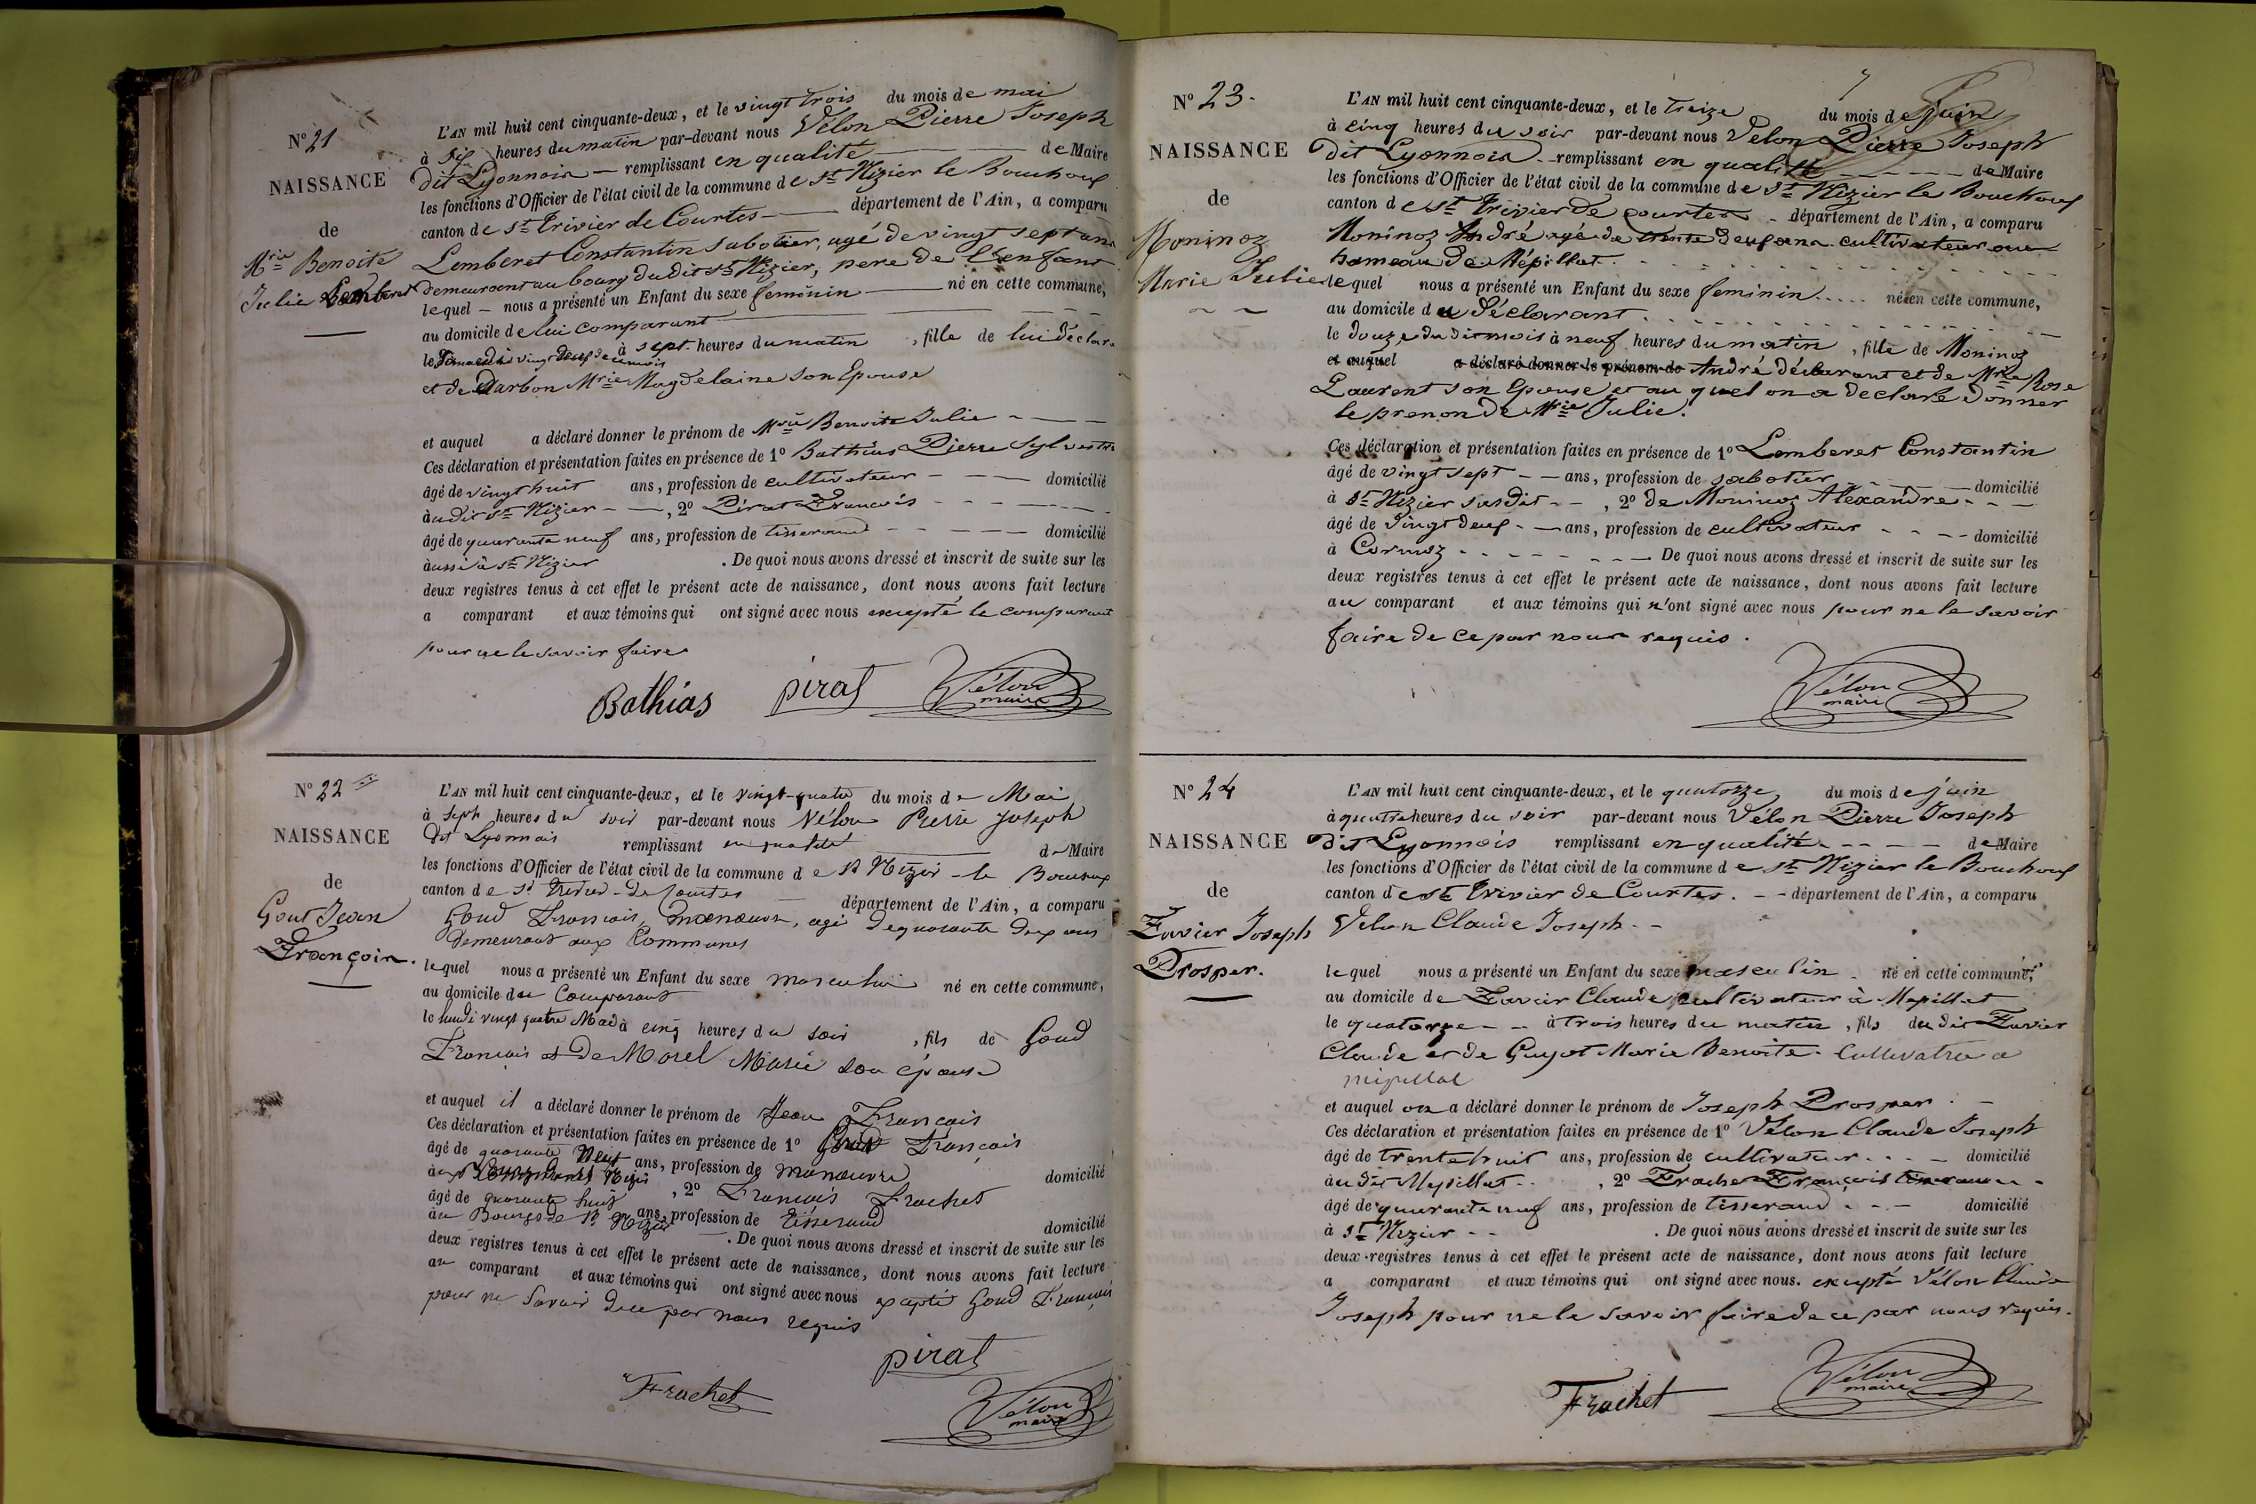 N° 21
NAISSANCE
de
Mrie Benoite
Julie Lemberet
L'AN mil huit cent cinquante-deux, et le vingt trois du mois de mai
à six heures du matin par-devant nous Vélon Pierre Joseph
dit Lyonnais — remplissant en qualité — de Maire
les fonctions d'Officier de l'état civil de la commune de St Nizier le Bouchoux
canton de St Trivier de Courtes — département de l'Ain, a comparu
Lemberet Constantin sabotier, agé de vingt sept ans
demeurant au bourg du dit St Nizier, pere de l'enfant
lequel — nous a présenté un Enfant du sexe feminin — né en cette commune,
au domicile de lui comparant
le à sept heures du matin, fille de lui déclara
et de Darbon Mrie Magdelaine son Epouse
et auquel a déclaré donner le prénom de Mrie Benoite Julie
Ces déclaration et présentation faites en présence de 1° Bathias Pierre Sylvestre
âgé de vingt huit ans, profession de cultivateur — domicilié
àudit St Nizier — , 2° Pirat François
âgé de quarante neuf ans, profession de tisserand — domicilié
àussi à St Nizier . De quoi nous avons dressé et inscrit de suite sur les
deux registres tenus à cet effet le présent acte de naissance, dont nous avons fait lecture
a comparant et aux témoins qui ont signé avec nous excepté le comparant
pour ne le savoir faire
Bathias pirat Vélon maire
N° 22
NAISSANCE
de
Gout Jean
François.
L'AN mil huit cent cinquante-deux, et le vingt-quatre du mois de Mai
à sept heures du soir par-devant nous Vélon Pierre Joseph
dit Lyonnais remplissant en qualité de Maire
les fonctions d'Officier de l'état civil de la commune de St Nizier-le Bouchoux
canton de St Trivier-de Courtes — département de l'Ain, a comparu
Goud François, manœuvre, agé de quarante ans
demeurant aux Communes
lequel nous a présenté un Enfant du sexe masculin né en cette commune,
au domicile du Comparant
le lundi vingt quatre Mai à cinq heures du soir, fils de Goud
François et de Morel Marie son épouse
et auquel il a déclaré donner le prénom de Jean François
Ces déclaration et présentation faites en présence de 1° François
âgé de quarante neuf ans, profession de manœuvre domicilié
, 2° François Frachet
âgé de quarante huit ans, profession de Tisserand domicilié
au Bourg de St Nizier . De quoi nous avons dressé et inscrit de suite sur les
deux registres tenus à cet effet le présent acte de naissance, dont nous avons fait lecture
au comparant et aux témoins qui ont signé avec nous excepté Goud François
pour ne savoir de ce par nous requis
pirat
Frachet Vélon maire
7
N° 23.
NAISSANCE
de
Moninoz
Marie Julie
L'AN mil huit cent cinquante-deux, et le treize du mois de juin
à cinq heures du soir par-devant nous Velon Pierre Joseph
dit Lyonnais — remplissant en qualité — de Maire
les fonctions d'Officier de l'état civil de la commune de St Nizier le Bouchoux
canton de St Trivier de courtes — département de l'Ain, a comparu
Moninoz André agé de trente deux ans cultivateur au
hameau de Mépillat.
lequel nous a présenté un Enfant du sexe feminin né en cette commune,
au domicile du déclarant.
le douze du dit mois à neuf heures du matin, fille de Moninoz
et auquel a déclaré donner le prénom de André déclarant et de Mrie Rose
Laurent son Epouse et au quel on a declaré donner
le prenon de Mrie Julie.
Ces déclaration et présentation faites en présence de 1° Lemberet Constantin
âgé de vingt sept — ans, profession de sabotier — domicilié
à St Nizier susdit — , 2° de Moninoz Alexandre
âgé de vingt deux — ans, profession de cultivateur — domicilié
à Cormoz — De quoi nous avons dressé et inscrit de suite sur les
deux registres tenus à cet effet le présent acte de naissance, dont nous avons fait lecture
au comparant et aux témoins qui n'ont signé avec nous pour ne le savoir
faire de ce par nous requis.
Vélon maire
N° 24
NAISSANCE
de
Favier Joseph
Prosper.
L'AN mil huit cent cinquante-deux, et le quatorze, du mois de juin
à quatre heures du soir par-devant nous Vélon Pierre Joseph
dit Lyonnais remplissant en qualité — de Maire
les fonctions d'Officier de l'état civil de la commune de St Nizier le Bouchoux
canton de St Trivier de Courtes. — département de l'Ain, a comparu
Velon Claude Joseph.
lequel nous a présenté un Enfant du sexe masculin né en cette commune,
au domicile de Favier Claude cultivateur à Mepillat
le quatorze — à trois heures du matin, fils du dit Favier
Claude et de Guyot Marie Benoite. Cultivatrice a
mépillat
et auquel on a déclaré donner le prénom de Joseph Prosper.
Ces déclaration et présentation faites en présence de 1° Vélon Claude Joseph
âgé de trente huit ans, profession de cultivateur — domicilié
àu dit Mepillat , 2° Frachet François
âgé de quarante neuf ans, profession de tisserand — domicilié
à St Nizier . De quoi nous avons dressé et inscrit de suite sur les
deux registres tenus à cet effet le présent acte de naissance, dont nous avons fait lecture
a comparant et aux témoins qui ont signé avec nous. excepté Vélon Claude
Joseph pour ne le savoir faire de ce par nous requis.
Frachet Vélon maire